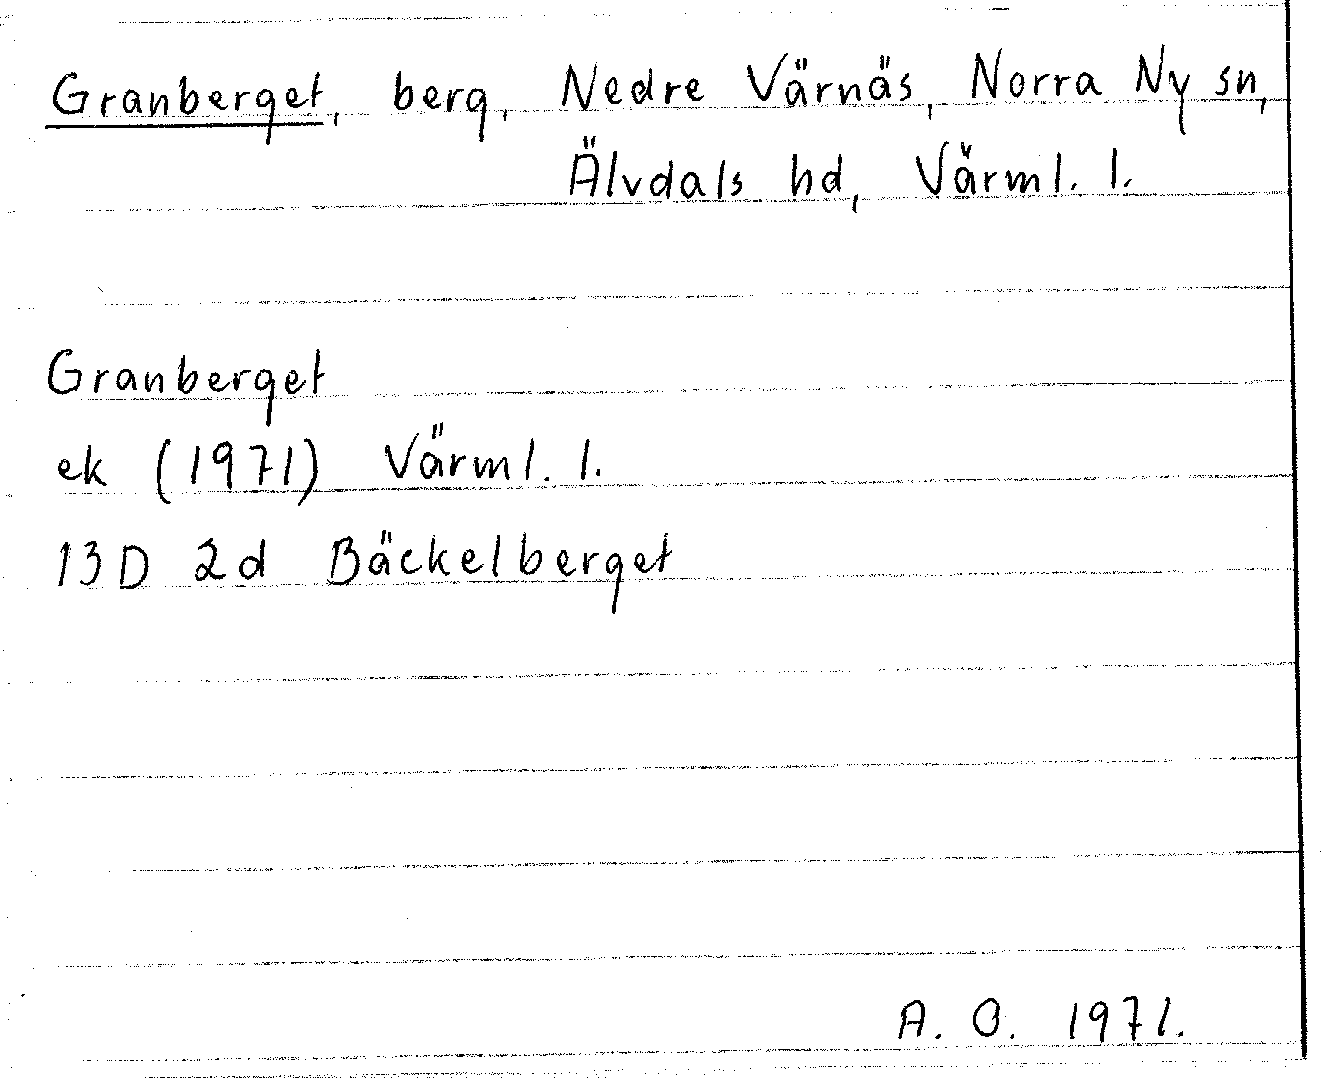 Granberget, berg, Nedre Värnäs, Norra Ny sn,
Älvdals hd, Värml. l.
Granberget
ek (1971) Värml. l.
13D 2d Bäckelberget
A. O. 1971.